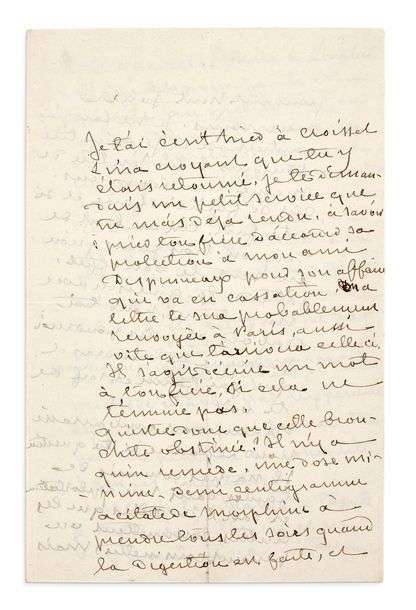 Je t'ai écrit hier à Croisset
ma croyant que tu y
étais retourné, je te deman-
dais un petit service que
tu m'as déjà rendu, à savoir
prier ton frère d'accorder sa
protection à mon ami
Despruneaux pour son affaire
qui va en cassation. Ma
lettre te sera probablement
renvoyée à Paris, aussi
vite que t'arrivera celle ci.
Il s'agit d'écrire un mot
à ton frère, si cela ne
t'ennuie pas.
Qu'est donc que cette bron-
chite obstinée? Il n'y a
qu'un remède, une dose mi-
nime - demi centigramme
acétate de morphine à
prendre tous les soirs quand
la digestion est faite, et